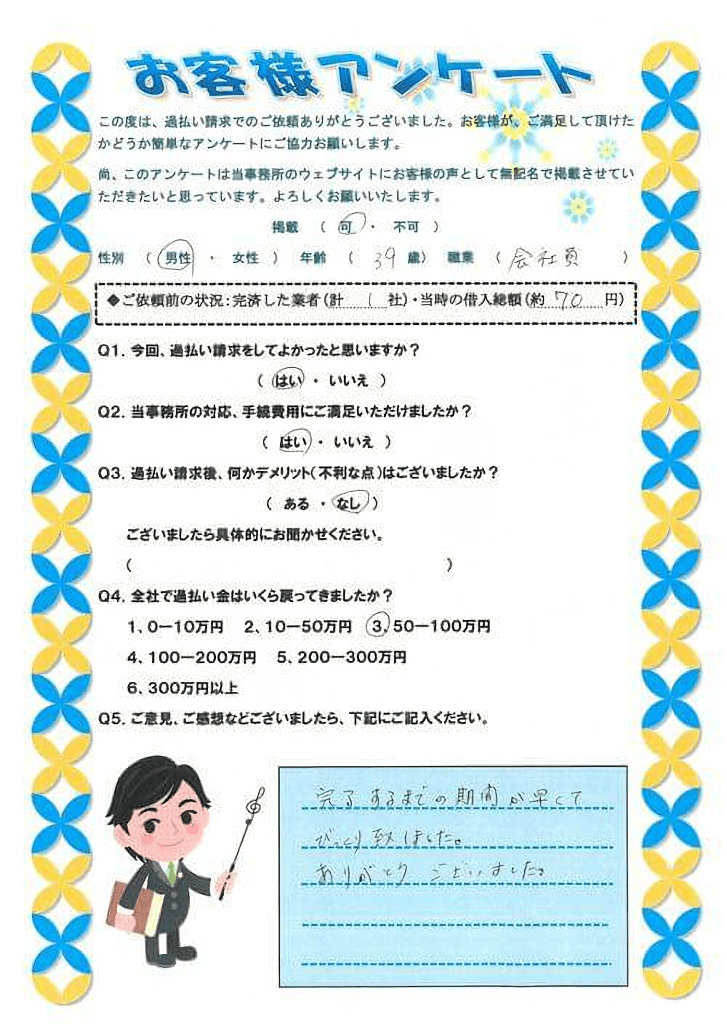 お客様アンケート
この度は、過払い請求でのご依頼ありがとうございました。お客様が、ご満足して頂けた
かどうか簡単なアンケートにご協力お願いします。
尚、このアンケートは当事務所のウェブサイトにお客様の声として無記名で掲載させてい
ただきたいと思っています。よろしくお願いいたします。
掲載 ( 可 ・ 不可 )
性別 ( 男性 ・ 女性 ) 年齢 ( 39 歳) 職業 ( 会社員 )
◆ご依頼前の状況:完済した業者(計 1 社)・当時の借入総額(約 70 円)
Q1. 今回、過払い請求をしてよかったと思いますか?
( はい ・ いいえ )
Q2. 当事務所の対応、手続費用にご満足いただけましたか?
( はい ・ いいえ )
Q3. 過払い請求後、何かデメリット(不利な点)はございましたか?
( ある ・ なし )
ございましたら具体的にお聞かせください。
( )
Q4. 全社で過払い金はいくら戻ってきましたか?
1、0ー10万円 2、10ー50万円 3、50ー100万円
4、100ー200万円 5、200ー300万円
6、300万円以上
Q5. ご意見、ご感想などございましたら、下記にご記入ください。
完了するまでの期間が早くて
びっくり致しました。
ありがとうございました。